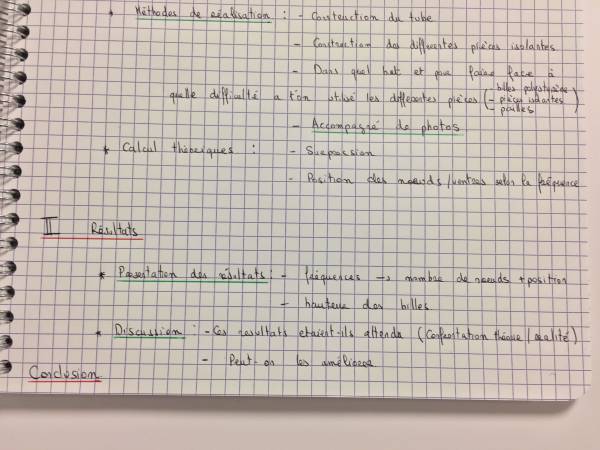 * Méthodes de réalisation : - Construction du tube
- Construction des différentes pièces isolantes
- Dans quel but et pour faire face à
quelle difficulté a t'on utilisé les différentes pièces (- billes polystyrène
- pièces isolantes)
- pailles
- Accompagné de photos
* Calcul théoriques : - Surpression
- Position des noeuds/ventres selon la fréquence
II Résultats
* Présentation des résultats : - fréquences → nombre de noeuds + position
- hauteur des billes
* Discussion : - Ces résultats etaient-ils attendu (Confrontation théorie/réalité)
- Peut-on les améliorer
Conclusion